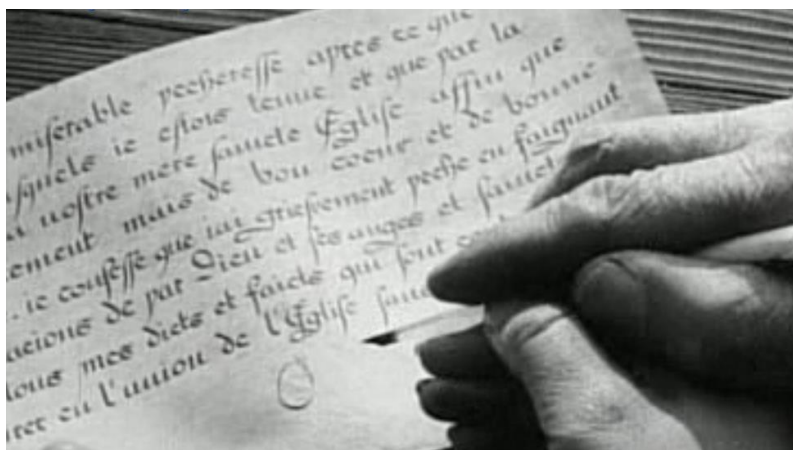 miserable pecheresse apres ce que
esquels ie estois tenue et que par la
a nostre mere saincte Eglise affin que
ement mais de bon coeur et de bonne
ie confesse que iai griefvement peche en faignant
acions de par Dieu et ses anges et sainct
tous mes dicts et faicts qui sont
en l'union de l'Eglise
O